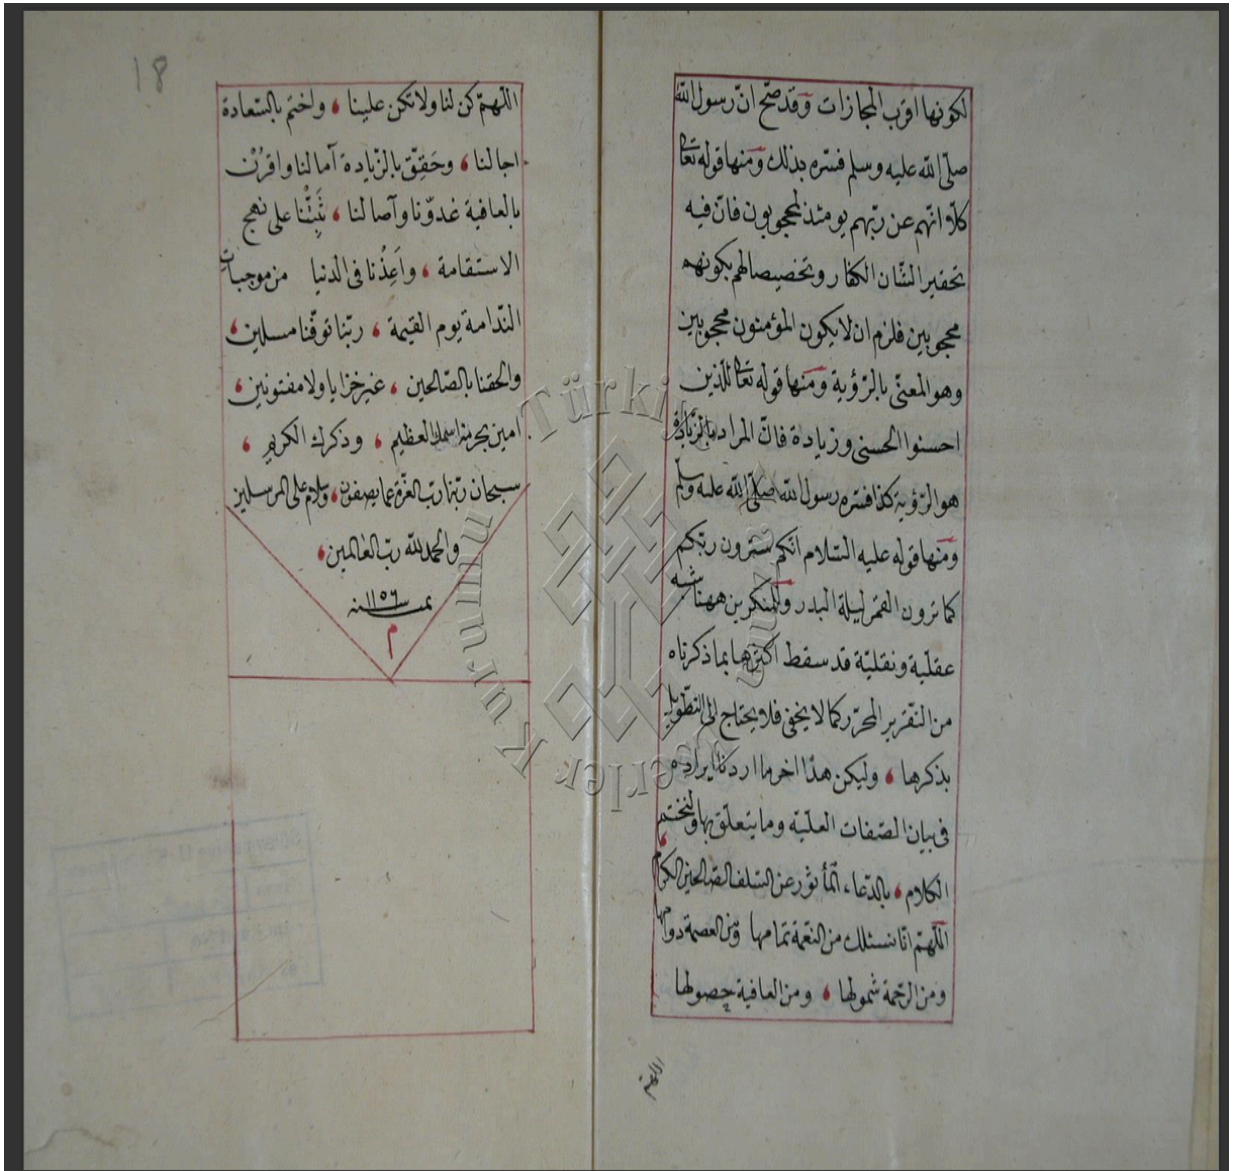 لكونها اقرب المجازات وقد صحّ انّ رسول اللّه
صلّى اللّه عليه وسلم فسّره بذلك ومنها قوله تعالى
كلّا انّهم عن ربّهم يومئذ لمحجوبون فانّ فيه
تحقير الشّان الكفار وتخصيصا لهم بكونهم
محجوبين فلزم ان لا يكون المؤمنون محجوبين
وهو المعنّى بالرّؤية ومنها قوله تعالى للّذين
احسنوا الحسنى وزيادة فانّ المراد بالزّيادة
هو الرّؤية كذا فسّره رسول اللّه صلّى اللّه عليه وسلّم
ومنها قوله عليه السّلام انّكم سترون ربّكم
كما ترون القمر ليلة البدر وللمنكرين ههنا شبه
عقليّة ونقليّة قد سقط اكثرها بما ذكرناه
من التّقرير المحرّر كما لا يخفى فلا يحتاج الى التّطويل
بذكرها، وليكن هذا اخر ما اردنا ايراده
فى بيان الصّفات العليّه وما يتعلّق بها ولنختتم
الكلام، بالدّعاء المأثور عن السّلف الصّالحين الكرام،
اللّهمّ انّا نسئلك من النّعمة تمامها ومن العصمة دوامها
ومن الرّحمة شمولها، ومن العافية حصولها
اللّهمّ
18
اللّهمّ كن لنا ولا تكن علينا، واختم بالسّعادة
اجالنا، وحَقِّق بالزّيادة آمالنا واقرُن
بالعافية غدوّنا وآصالنا، ثَبِّتْنا على نهج
الاستقامة، واَعِذْنا فى الدنيا من موجبات
النّدامة يوم القيمة، ربّنا توفّنا مسلمين،
والحقنا بالصّالحين، غير خزايا ولا مفتونين،
امين بحرمة اسمك العظيم، وذكرك الكريم،
سبحان ربّنا ربّ العزّة عما يصفون، وسلام على المرسلين
والحمد للّه ربّ العالمين،
سنه ١١٥٦
م
Türkiye Yazma Eserler Kurumu